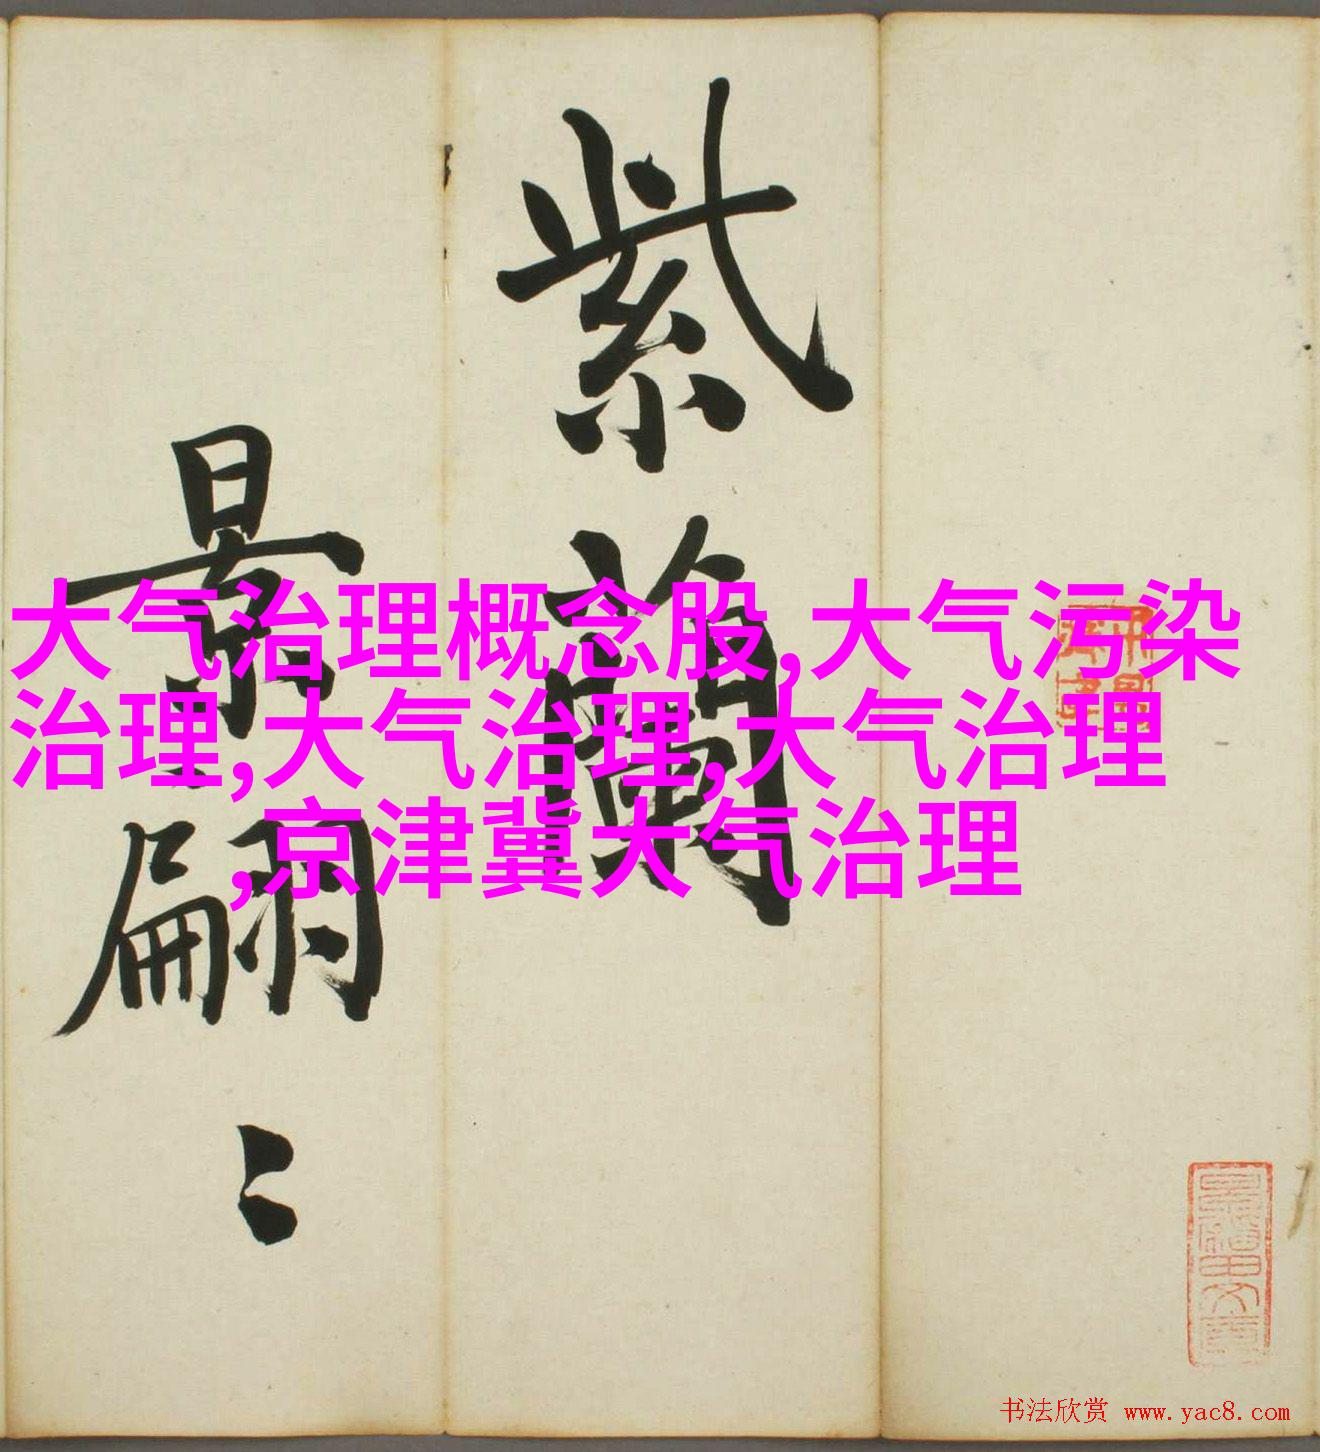 紫蘭
景翩〻
大气治理概念股,大气污染
治理,大气治理,大气治理
,京津冀大气治理
书法欣赏 www.yac8.com